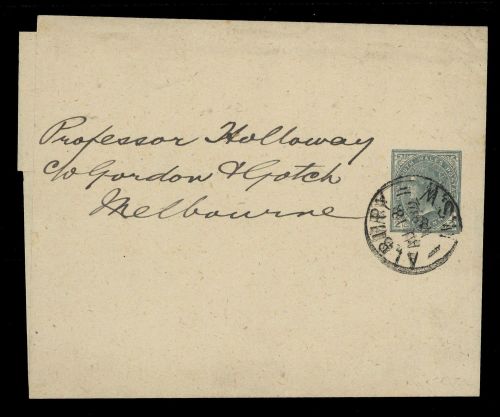 Professor Holloway
c/o Gordon & Gotch
Melbourne
ALBURY
N.S.W